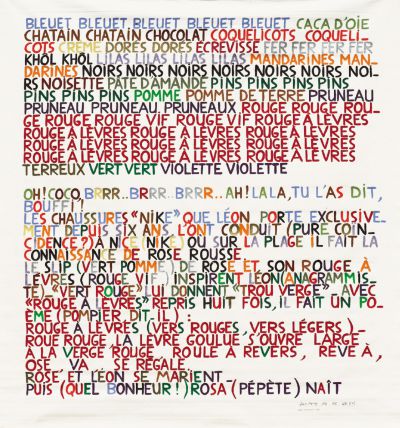 BLEUET BLEUET.BLEUET BLEUET BLEUET CACA D'OIE
CHATAIN CHATAIN CHOCOLAT COQUELICOTS COQUELI-
COTS CRÈME DORÉS DORÉS ECREVISSE FER FER FER FER
KHÔL KHÔL LILAS LILAS LILAS LILAS MANDARINES MAN-
DARINES NOIRS NOIRS NOIRS NOIRS NOIRS NOIRS NOI-
RS NOISETTE PÂTE D'AMANDE PINS PINS PINS PINS
PINS PINS PINS POMME POMME DE TERRE PRUNEAU
PRUNEAU PRUNEAU PRUNEAUX ROUGE ROUGE ROU-
GE ROUGE ROUGE VIF ROUGE VIF ROUGE À LÈVRES
ROUGE À LÈVRES ROUGE À LÈVRES ROUGE À LÈVRES
ROUGE À LÈVRES ROUGE À LÈVRES ROUGE À LÈVRES
ROUGE À LÈVRES ROUGE À LÈVRES ROUGE À LÈVRES
TERREUX VERT VERT VIOLETTE VIOLETTE
OH! COCO, BRRR..BRRR..BRRR..AH! LALA, TU L'AS DIT,
BOUFFI!
LES CHAUSSURES "NIKE" QUE LÉON PORTE EXCLUSIVE-
MENT DEPUIS SIX ANS, L'ONT CONDUIT (PURE COÏN-
CIDENCE?) À NICE (NIKE) OÙ SUR LA PLAGE IL FAIT LA
CONNAISSANCE DE ROSE ROUSSE
LE SLIP (VERT POMME) DE ROSE ET SON ROUGE À
LÈVRES (ROUGE VIF) INSPIRENT LÉON (ANAGRAMMIS-
TE). "VERT ROUGE" LUI DONNENT "TROU VERGE" AVEC
"ROUGE À LÈVRES" REPRIS HUIT FOIS, IL FAIT UN PO-
ÈME (POMPIER DIT-IL) :
ROUGE À LÈVRES (VERS ROUGES, VERS LÉGERS)-
ROUE ROUGE, LA LÈVRE GOULUE S'OUVRE LARGE
À LA VERGE ROUGE. ROULE À REVERS, RÊVE À,
OSE, VA.. SE RÉGALE.
ROSE ET LÉON SE MARIENT-
PUIS (QUEL BONHEUR!) ROSA (PÉPÈTE) NAÎT